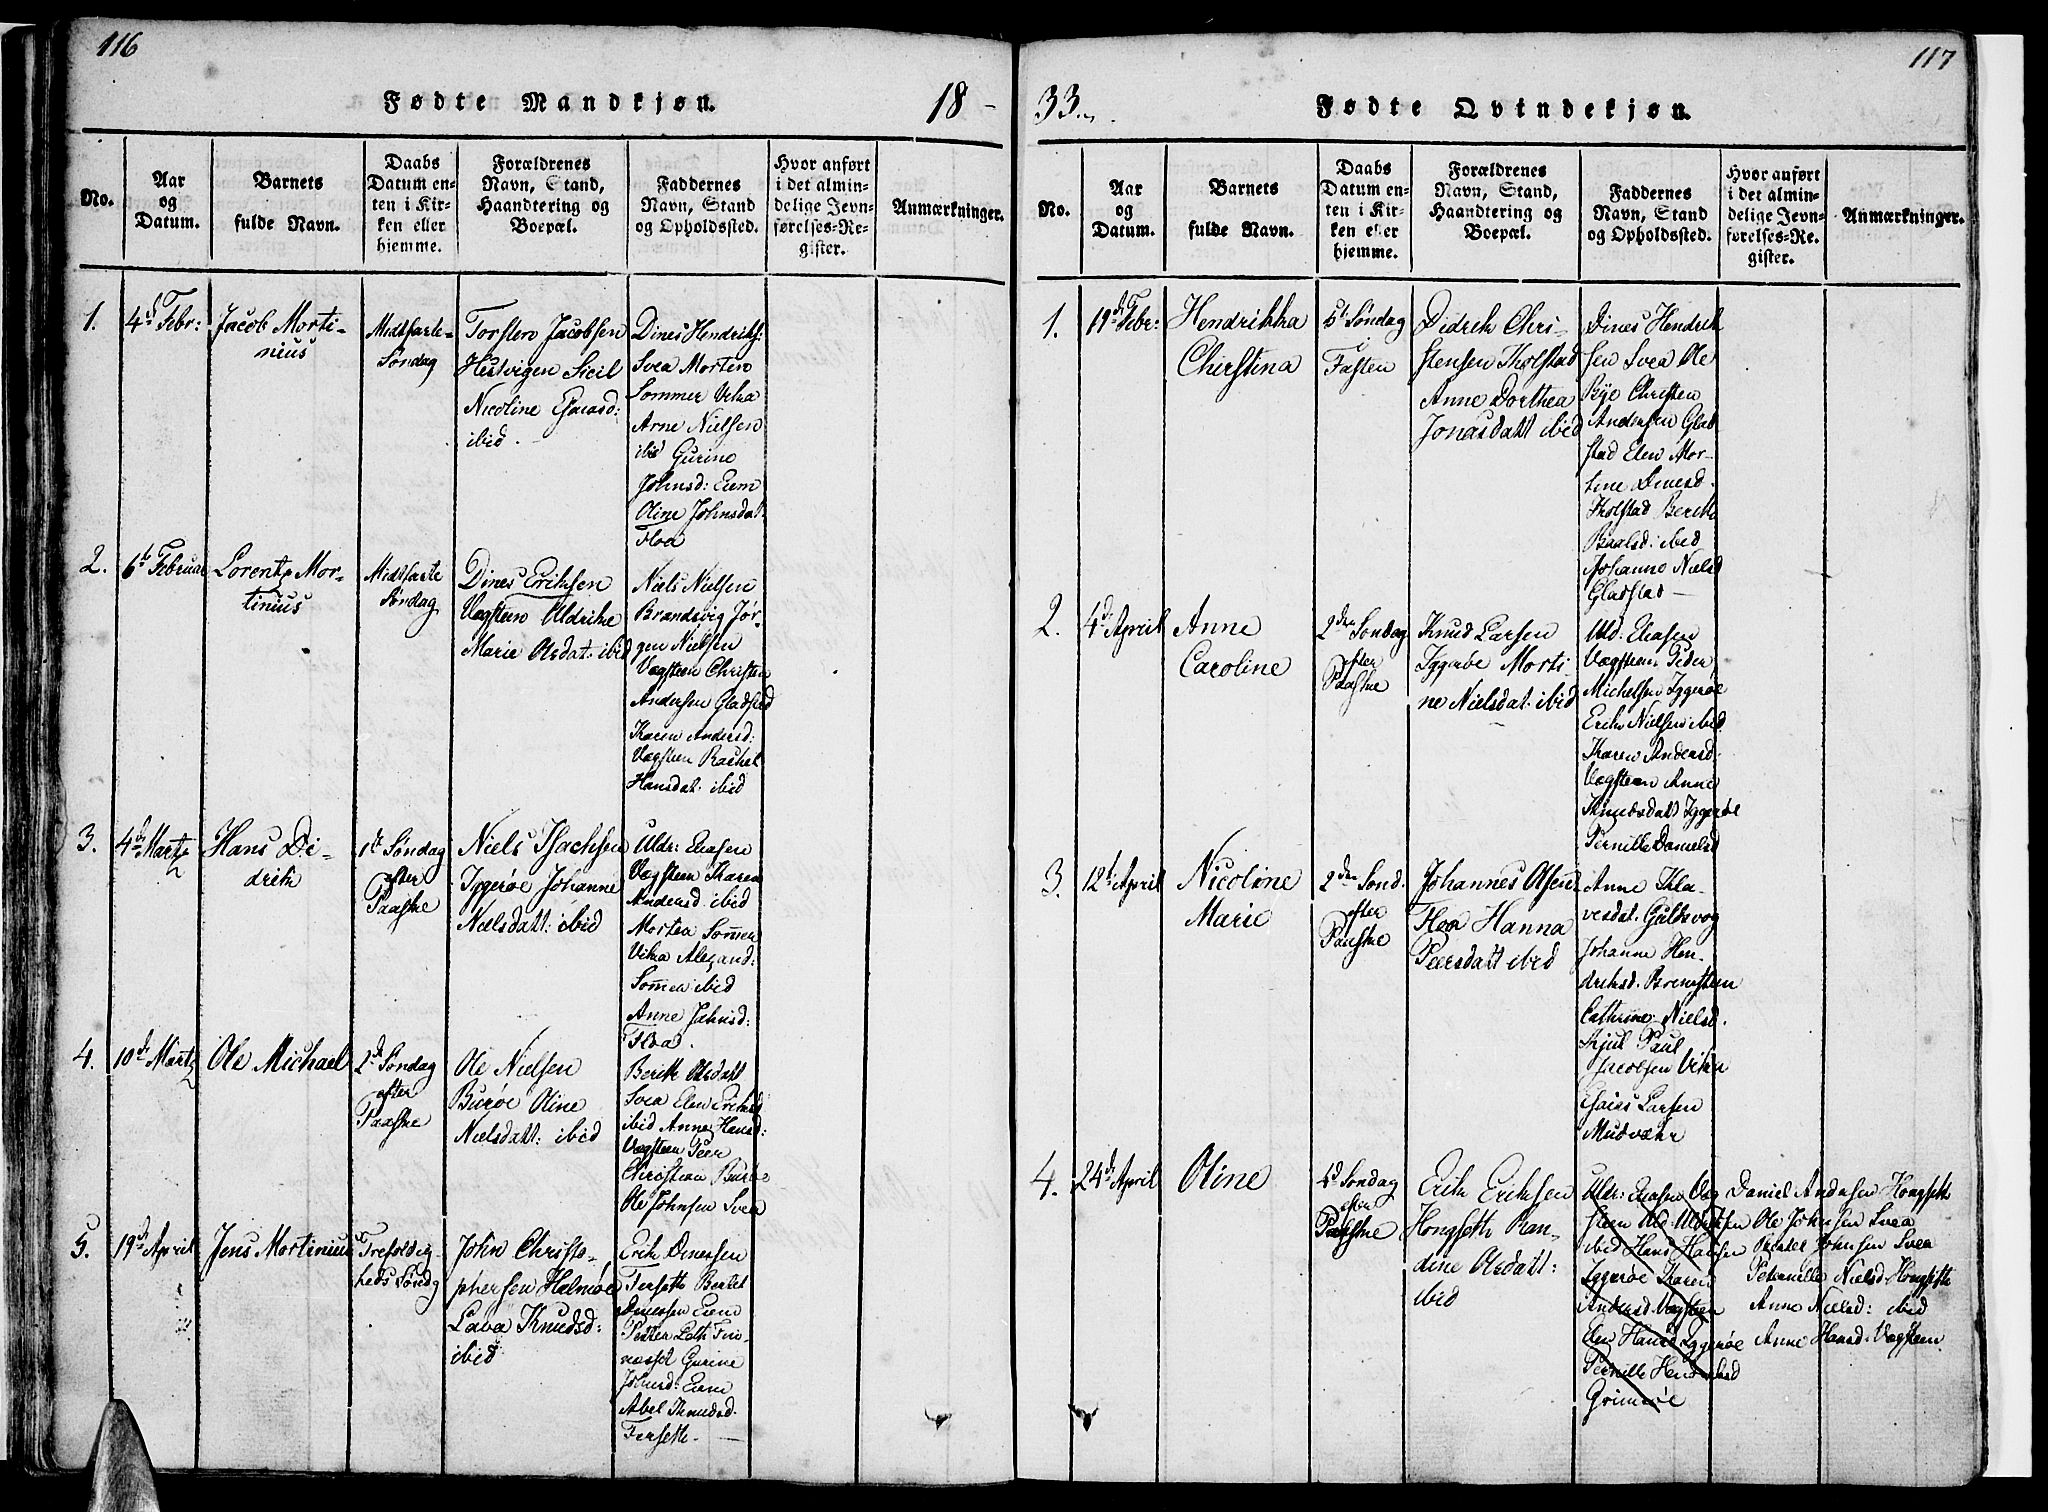 116
Fødte Mandkjøn.
18 -
No.
Aar
og
Datum.
Barnets
fulde Navn.
Daabs
Datum en-
ten i Kir-
ken eller
hjemme.
Forældrenes
Navn, Stand,
Haandtering og
Boepæl.
Faddernes
Navn, Stand
og Opholdssted.
Hvor anført
i det almin-
delige Jevn-
førelses-Re-
gister.
Anmærkninger.
1.
4d Febr:
Jacob Morti-
nius
Midtfaste-
Søndag
Torsten Jacobsen
Hestvigen Sicil
Nicoline Esaiasd:
ibid.
Dines Hendriks:
Svea Morten
Sommer Vika
Arne Nielsen
ibid Gurine
Johnsd: Eiem
Oline Johnsdat.
Floa
2.
6te Februar
Lorentz Mor-
tinius
Midtfaste
Søndag
Dines Eriksen
Vægsteen Uldrikke
Marie Olsdat: ibid
Niels Nielsen
Brandsvig Jør-
gen Nielsen
Vægsteen Christen
Andersen Gladstad
Karen Andersd:
Vægsteen Rachel
Hansdat: ibid
3.
4de Martz
Hans Di-
drik
1te Søndag
efter
Paaske
Niels Isachsen
Yggerøe Johanne
Nielsdatt: ibid
Uldr: Eliasen
Vægsteen Karen
Andersd. ibid
Morten Sommer
Vika Alexand:
Sommer ibid
Anne Johnsd:
Floa.
4.
10de Martz
Ole Michael
2d Søndag
efter
Paaske
Ole Nielsen
Burøe Oline
Nielsdatt: ibid
Berith Olsdatt
Svea Elen Eriksd
ibid Anne Hansd:
Vægsteen Peer
Christian Burøe
Ole Johnsen Svea
5.
19de April
Jens Mortinius
Trefoldig-
heds Søndg
John Christo-
phersen Holmøe
Lava Knudsd:
ibid
Erik Dinessen
Forseth Bertel
Dinessen Eiem
Petter Loth
Gurine
Johnsd: Eiem
Abel Knudsd.
Forseth. —
117
33.
Fødte Qvindekjøn.
No.
Aar
og
Datum.
Barnets
fulde Navn.
Daabs
Datum en-
ten i Kir-
ken eller
hjemme.
Forældrenes
Navn, Stand,
Haandtering og
Boepæl.
Faddernes
Navn, Stand
og Opholdssted.
Hvor anført
i det almin-
delige Jevn-
førelses-Re-
gister.
Anmærkninger.
1.
19d Febr:
Hendrikka
Chirstina
5t Søndag
i
Fasten
Didrik Chri-
stensen Tholstad
Anne Dorthea
Jonasdatt ibid
Dines Hendrik
sen Svea Ole
Bye Christen
Andersen Glad
stad Elen Mor-
tine Dinesd.
Tholstad Berith
Paalsd: ibid
Johanne Nielsd
Gladstad —
2.
4d April
Anne
Caroline
2den Søndag
efter
Paaske
Knud Larsen
Yggerøe Morti
ne Nielsdat: ibid
Uld: Eliasen
Vægsteen Peder
Michelsen Yggerøe
Erik Nielsen ibid
Karen Andersd:
Vægsteen Anne
Knudsdatt Yggerøe
Pernille Danielsd
3.
12te April
Nicoline
Marie
2den Sønd.
efter
Paaske
Johannes Olsen
Floa Hanna
Peersdatt ibid
Anne Kla-
vesdat. Guldsvog
Johanne Hen-
driksd. Brensteen
Cathrine Nielsd.
Kjul Paul
Jacobsen Vikka
Esaias Larsen
Mudvær
4.
24de April
Oline
4d Søndag
efter
Paaske
Erik Eriksen
Hongseth Ran-
dine Olsdatt:
ibid
Uldr: Eliasen Væg
steen Uld: Uldriksen
ibid Hans Hansen
Yggerøe Karen
Andersd. Vægsteen
Elen Hansd Yggerøe
Pernille Hendriksd
Grimsøe
Daniel Andersen Hongseth
Ole Johnsen Svea
Bertel Johnsen Svea
Peternille Nielsd. Hongseth
Anne Nielsd: ibid
Anne Hansd. Vægsteen